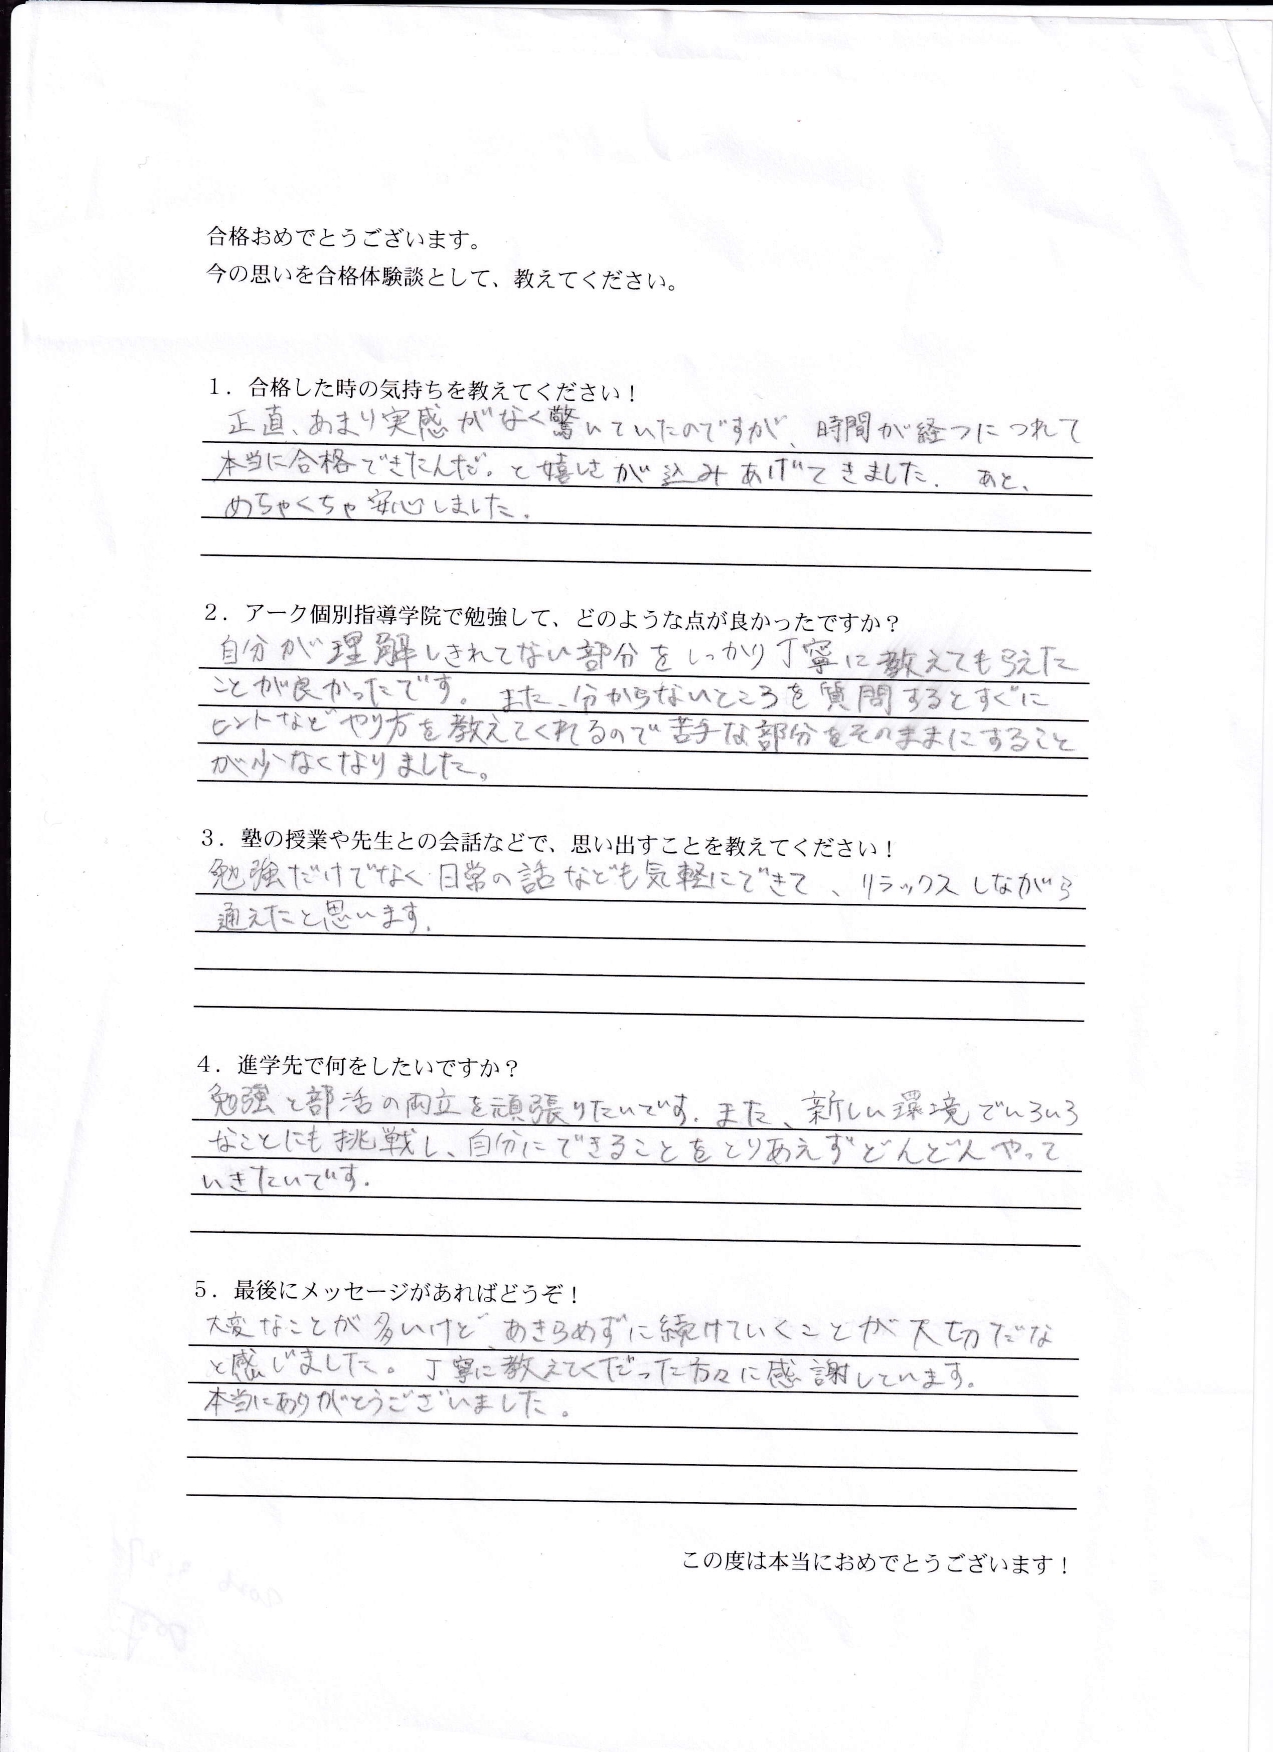 合格おめでとうございます。
今の思いを合格体験談として、教えてください。
1．合格した時の気持ちを教えてください！
正直、あまり実感がなく驚いていたのですが、時間が経つにつれて
本当に合格できたんだ。と嬉しさが込みあげてきました. あと、
めちゃくちゃ安心しました.
2．アーク個別指導学院で勉強して、どのような点が良かったですか？
自分が理解しきれてない部分をしっかり丁寧に教えてもらえた
ことが良かったです。また、分からないところを質問するとすぐに
ヒントなどやり方を教えてくれるので苦手な部分をそのままにすること
が少なくなりました。
3．塾の授業や先生との会話などで、思い出すことを教えてください！
勉強だけでなく日常の話なども気軽にできて、リラックスしながら
通えたと思います.
4．進学先で何をしたいですか？
勉強と部活の両立を頑張りたいです. また、新しい環境でいろいろ
なことにも挑戦し、自分にできることをとりあえずどんどんやって
いきたいです.
5．最後にメッセージがあればどうぞ！
大変なことが多いけど、あきらめずに続けていくことが大切だな
と感じました。丁寧に教えてくだった方々に感謝しています。
本当にありがとうございました。
この度は本当におめでとうございます！